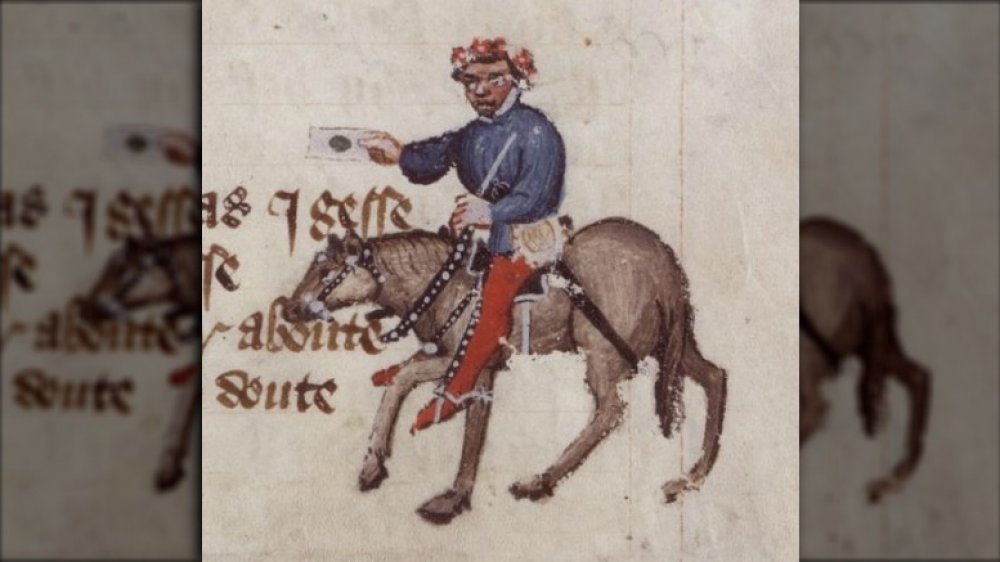 as I gesse
se
aboute
doute